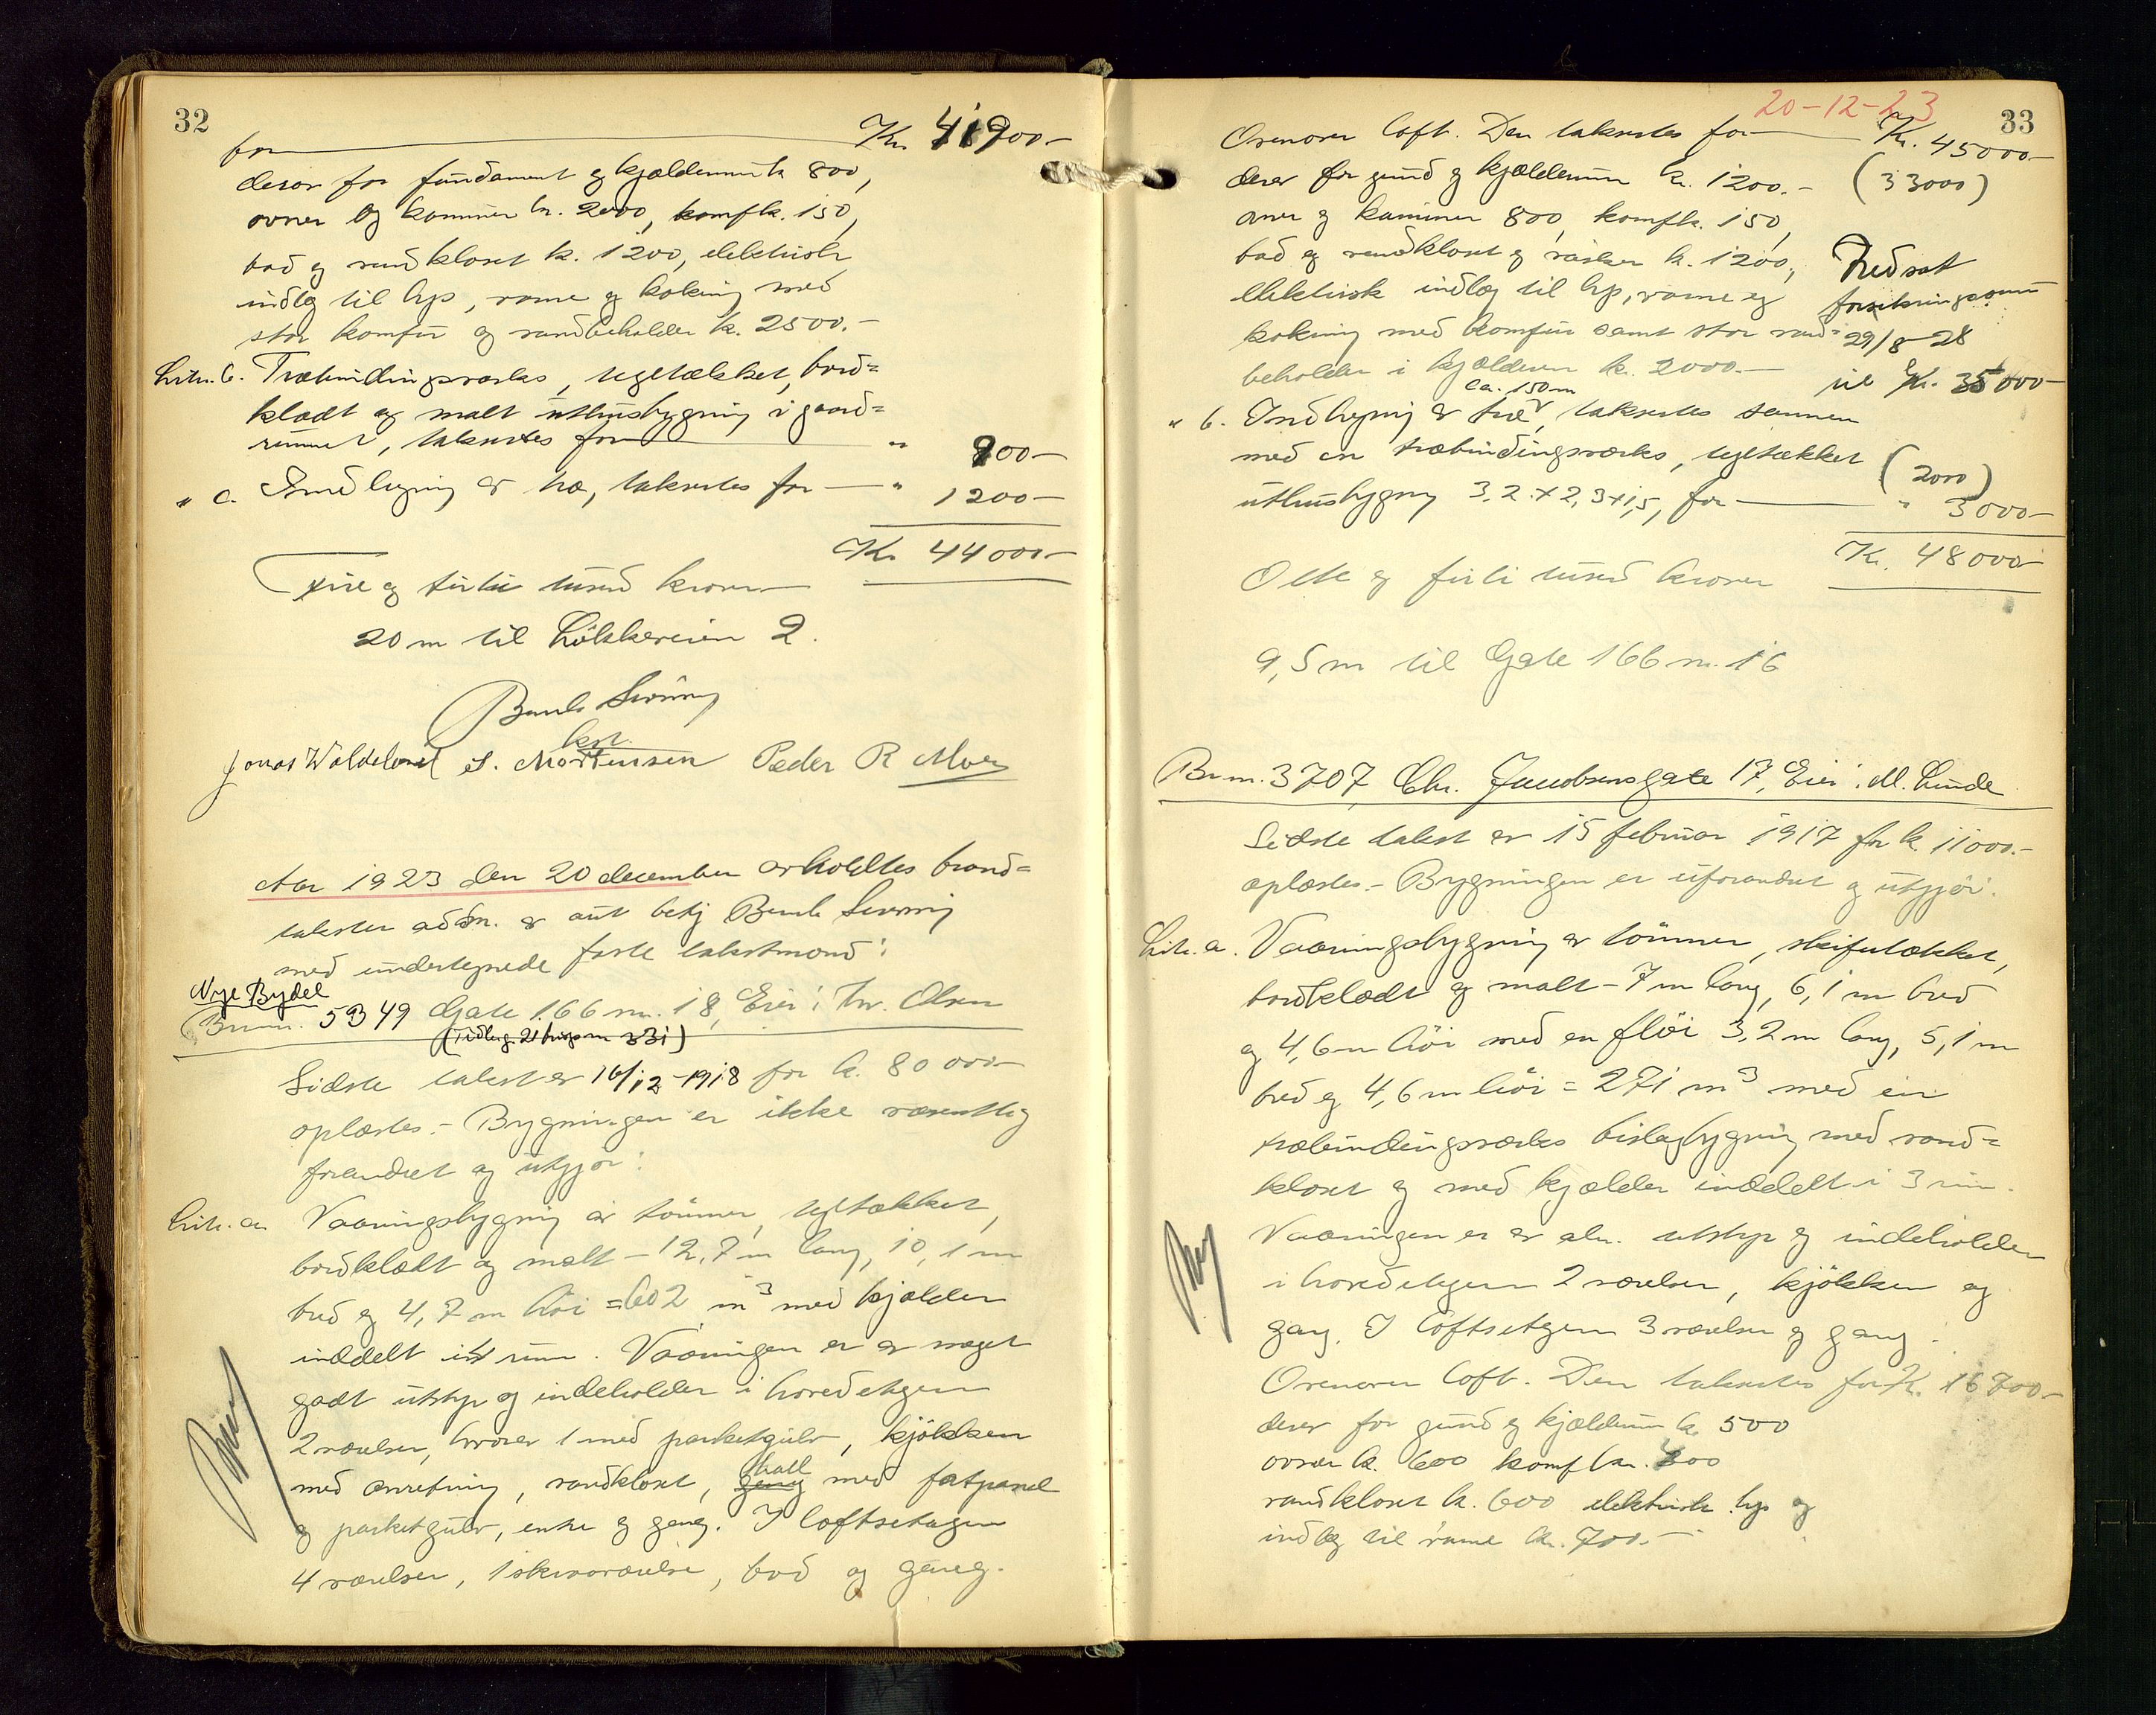 32
for Kr. 41900.-
derav for fundament og kjældermur k. 800,
ovner og kaminer kr. 2000, komf k. 150,
bad og vandkloset k. 1200, elektrisk
indlæg til lys, varme og koking med
stor komfur og vandbeholder k. 2500.-
Litr. b. Træbindingsverks, tegltækket, bord=
klædt og malt uthusbygning i gaards=
rummet, takseres for " 900.-
" c. Indhegning av træ, takseres for " 1200.-
Kr. 44000.-
Fire og firti tusind kroner
20 m til Lökkeveien 2.
Jonas Waldeland S. Mortensen Peder R Moe
Aar 1923 den 20 december avholdtes brand=
takster adm. av aut. betj.
med undertegnede faste takstmænd:
Nye Bydel
Br.nr. 5349 Gate 166 nr. 18, Eier: Olsen
Sidste takst er 16/12-1918 for k. 80 000.-
oplæstes.- Bygningen er ikke væsentlig
forandret og utgjør:
Litr. a. Vaaningsbygning av tömmer, tegltækket,
bordklædt og malt - 12,7 m lang, 10,1 m
bred og 4,7 m höi = 602 m³ med kjælder
inddelt i 4 rum. Vaaningen er av meget
godt utstyr og indeholder i hovedetagen
2 værelser, hvorav 1 med parketgulv, kjökken
med anretning, vandkloset, gang hall med fatpanel
og parketgulv, entre og gang. I loftsetagen
4 værelser, 1 skraaværelse, bod og gang.
20-12-23
33
Ovenover loft. Den takseres for Kr. 45000.-
derav for grund og kjældermur kr. 1200.- (33000)
ovner og kaminer 800, komf k. 150,
bad og vandkloset og vasker k. 1200,
Nedsat
elektrisk indlæg til lys, varme og
forsikringssum
koking med komfur samt stor vand=
29/8-28
beholder i kjælderen kr. 2000.-
til Kr. 35000-
ca. 150 m
" b. Indhegning av træ, takseres sammen
med en træbindingsverks, tegltækket
(2000)
uthusbygning 3,2 x 2,3 x 1,5, for " 3000.-
Kr. 48000.-
Otte og firti tusind kroner
9,5 m til Gate 166 nr. 16
Br.nr. 3707, Chr. Jacobsensgate 17, Eier: M. Lunde
Sidste takst er 15 februar 1917 for k. 11000.-
oplæstes.- Bygningen er uforandret og utgjör:
Litr. a. Vaaningsbygning av tömmer, skifertækket,
bordklædt og malt - 7 m lang, 6,1 m bred
og 4,6 m höi med en flöi 3,2 m lang, 5,1 m
bred og 4,6 m höi = 271 m³ med ein
træbindingsverks bislagbygning med vand=
kloset og med kjælder inddelt i 3 rum.
Vaaningen er av alm. utstyr og indeholder
i hovedetagen 2 værelser, kjökken og
gang. I loftsetagen 3 værelser og gang.
Ovenover loft. Den takseres for Kr. 16800.-
derav for grund og kjældermur k. 500
ovner k. 600 komf kr. 200
vandkloset k. 600 elektrisk lys og
indlæg til varme kr. 700.-